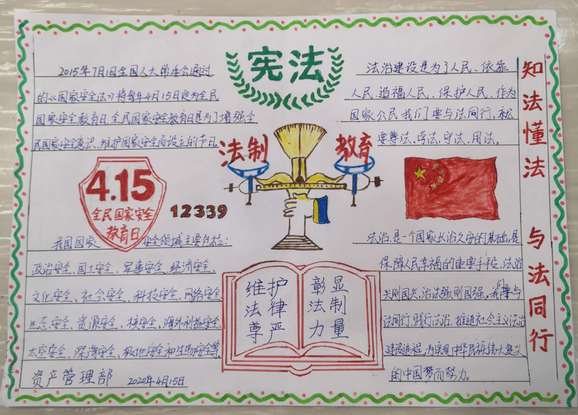 宪法
2015年7月1日全国人大常委会通过
的《国家安全法》将每年4月15日定为全民
国家安全教育日.全民国家安全教育日是为了增强全
民国家安全意识,维护国家安全而设立的节日.
法治建设是为了人民、依靠
人民、造福人民、保护人民,作为
国家公民我们要与法同行,就
要尊法、学法、守法、用法。
知法懂法 与法同行
法制 教育
4.15
全民国家安全
教育日
12339
我国国家安全领域主要包括:
政治安全、国土安全、军事安全、经济安全、
文化安全、社会安全、科技安全、网络安全
生态安全、资源安全、核安全、海外利益安全
太空安全、深海安全、极地安全和生物安全等
资产管理部 2022年4月15日
维护 彰显
法律 法制
尊严 力量
法治是一个国家长治久安的基础,是
保障人民幸福的重要手段,法治
兴则国兴,法治强则国强,
同行,践行法治,推进社会主义法治
的中国梦而努力。